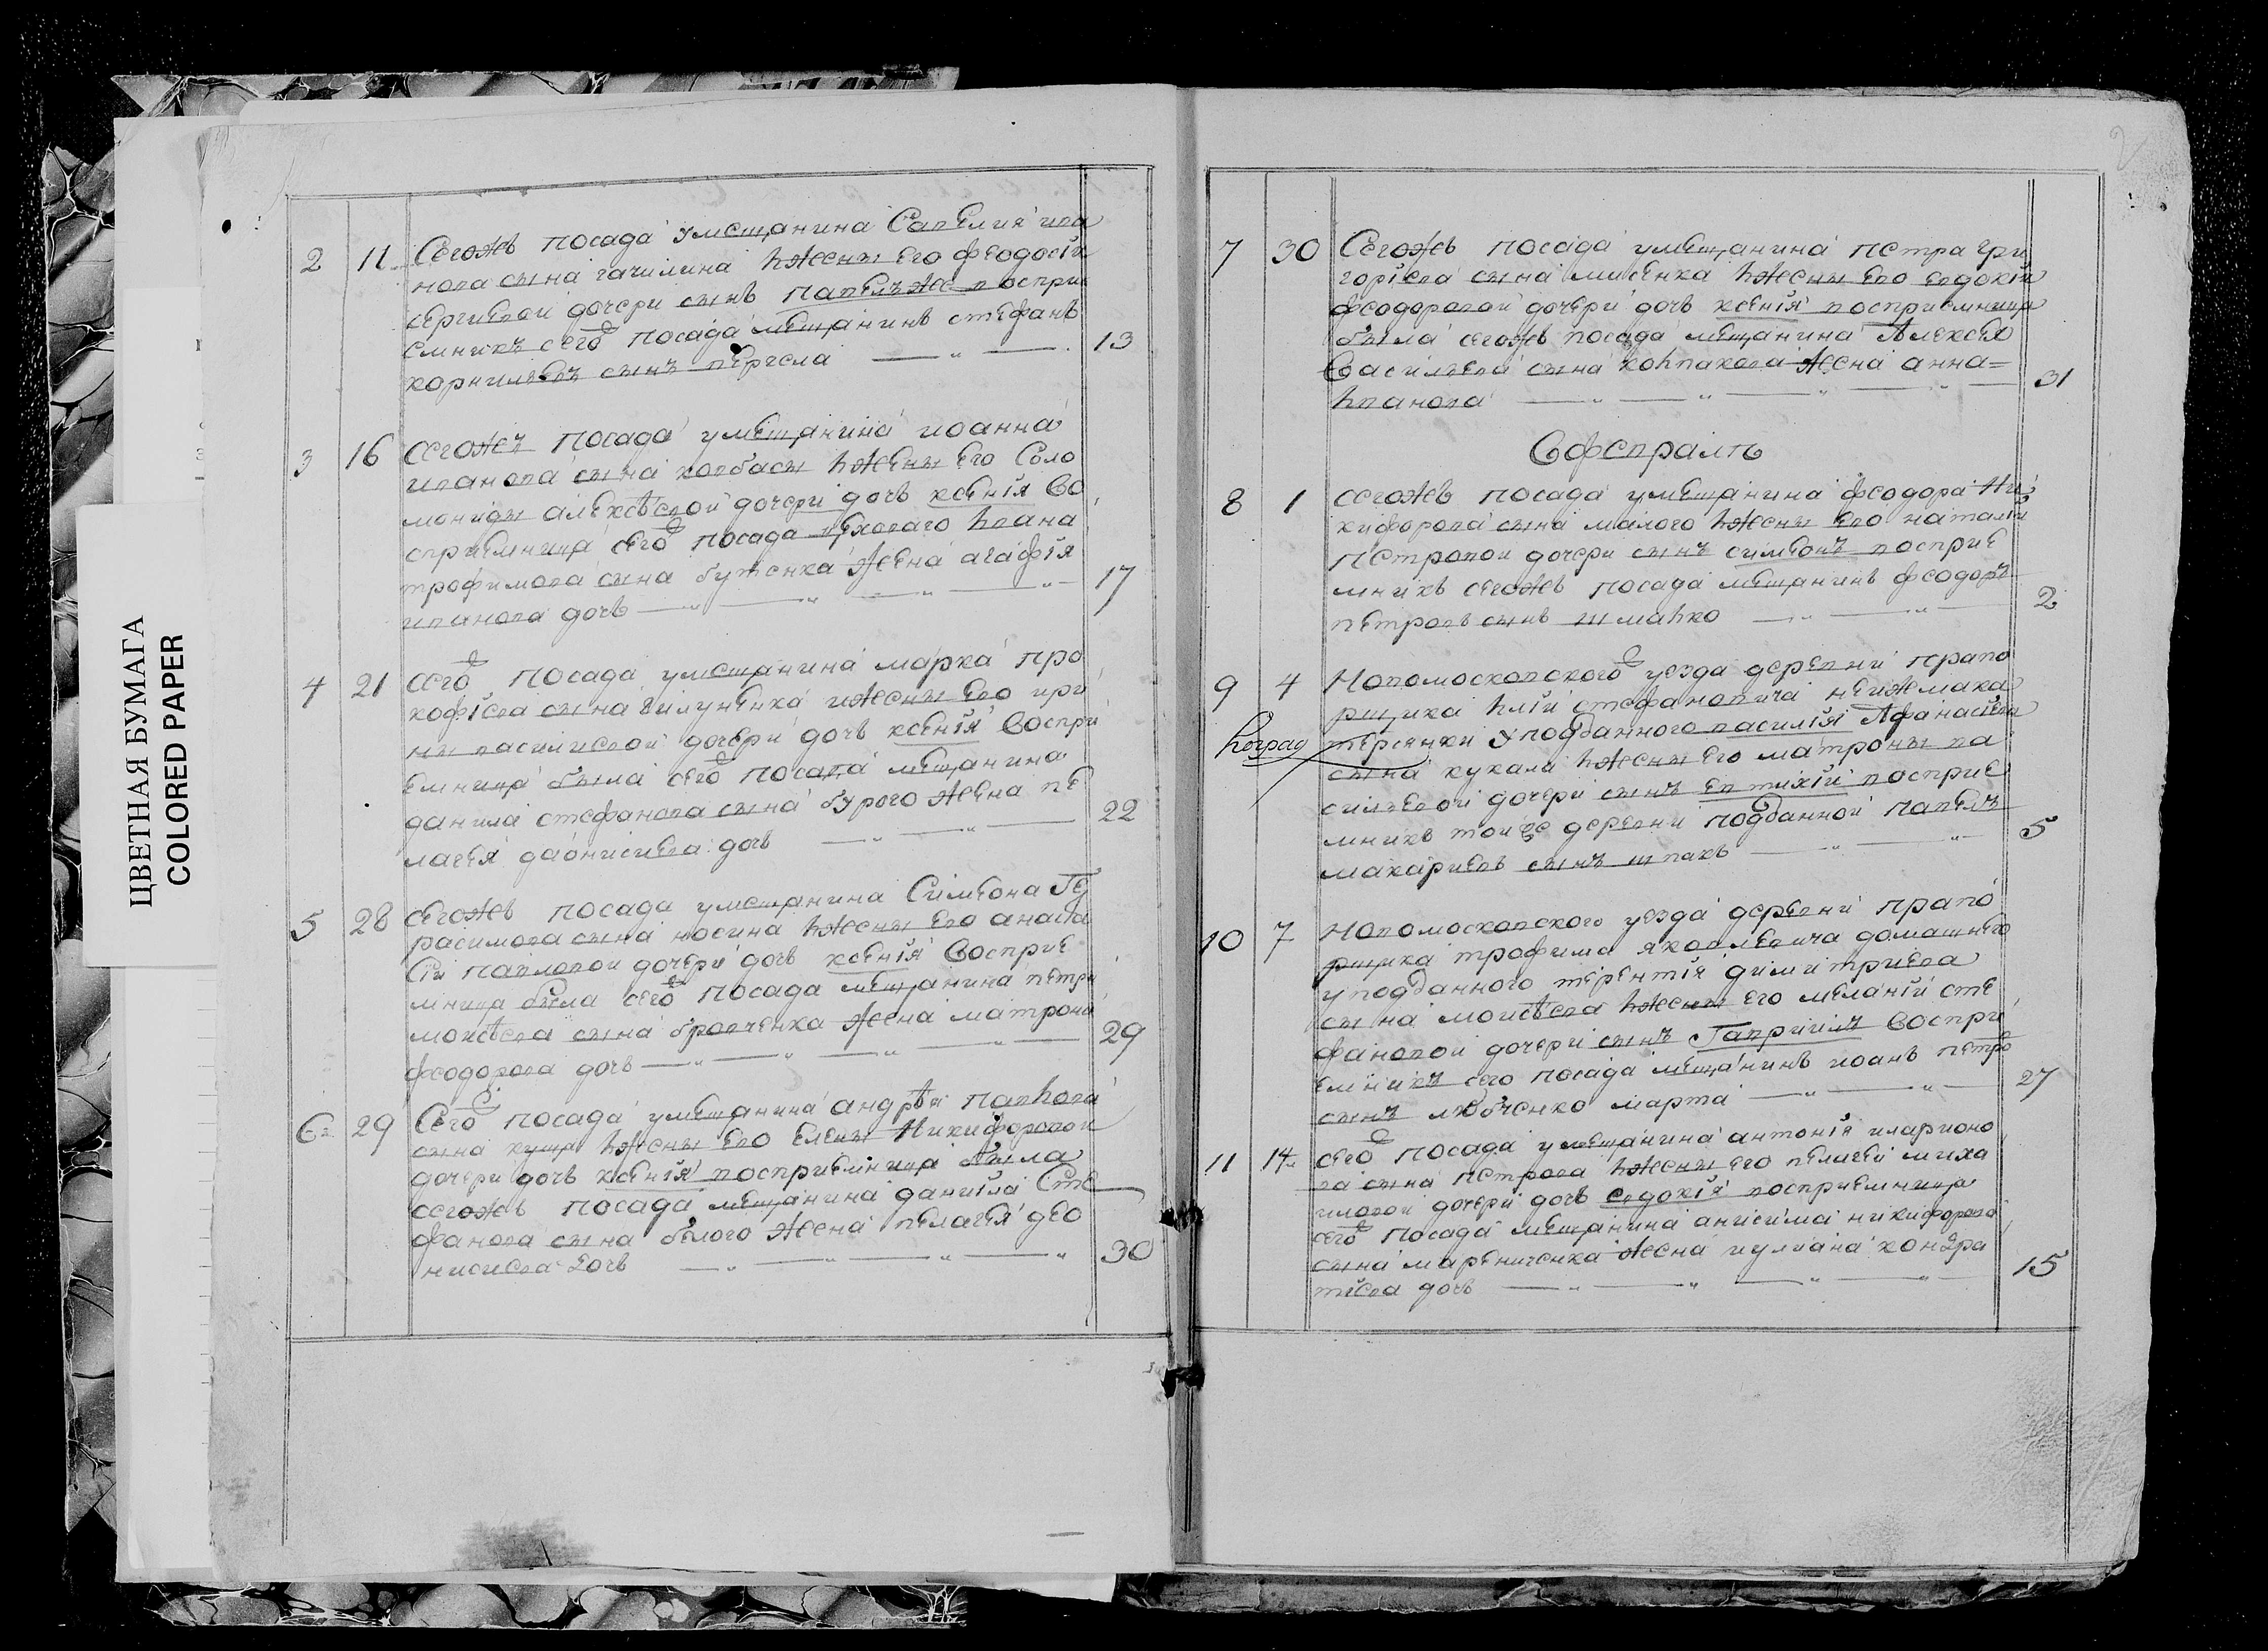 ЦВЕТНАЯ БУМАГА
COLORED PAPER
2 11 Сегожъ посада умещанина Савелия ива
нова сына гачилина ижены его феодосїи
сергиевой дочери сынъ павелъ же воспри
емникъ сегѡ посада мещанинъ стефанъ
корнилъевъ сынъ 13
3 16 сегожъ посада умещанина иоанна
иванова сына ковбасы ижены его Соло
мониды алексѣевой дочери дочь ксенїя Во
сприемница сего посада цехового ивана
трофимова сына бутенка жена агафїя
иванова дочь 17
4 21 сего посада умещанина марка про
кофїева сына ижены его ири
ны василиевой дочери дочь ксенїя Воспри
емница была сего посада мещанина
данила стефанова сына бурого жена пе
лагея даонисиева дочь 22
5 28 сегожъ посада умещанина Симеона Ге
расимова сына носина ижены его анаста
сїи павловой дочери дочь ксенїя Восприе
мница была сего посада мещанина петра
моисѣева сына бровченка жена матрона
феодорова дочь 29
6 29 Сего посада умещанина андрѣя павлова
сына куща ижены его елены Никифоровой
дочери дочь ксенїя восприемница была
сегожъ посада мещанина данїила Сте
фанова сына бѣлого жена пелагея део
нисиева дочь 30
2
7 30 Сегожъ посада умещанина петра гри
горїева сына мисенка ижены его евдокїи
феодоровой дочери дочь ксенїя восприемница
была сегожъ посада мещанина Алексея
Василъева сына колпакова жена анна=
иванова 31
Вфевралѣ
8 1 сегожъ посада умещанина феодора Ни
кифорова сына малого ижены его наталїи
Петровой дочери сынъ симеонъ восприе
мникъ сегожъ посада мещанинъ феодоръ
петровъ сынъ шманко 2
9 4 Новомосковского уезда деревни прапо
рщика илїи стефановича нейжмака
терсянки уподданного василїя Афанасїева
сына кукала ижены его матроны ва
силъевой дочери сынъ евтихїй восприе
мникъ тойже деревни подданной павелъ
макариевъ сынъ шпакъ 5
10 7 Новомосковского уезда деревни прапо
рщика трофима яковлевича домашнего
уподданного терентїя димитриева
сына моисѣева ижены его меланїи сте
фановой дочери сынъ Гаврїилъ Воспри
емникъ сего посада мещанинъ иоанъ петро
сынъ любченко марта 27
11 14 сего посада умещанина антонїя иларионо
ва сына петрова ижены его пелагеи миха
иловой дочери дочь евдокїя восприемница
сего посада мещанина анисима никифорова
сына марениченка жена иулиана кондра
тїева дочь 15